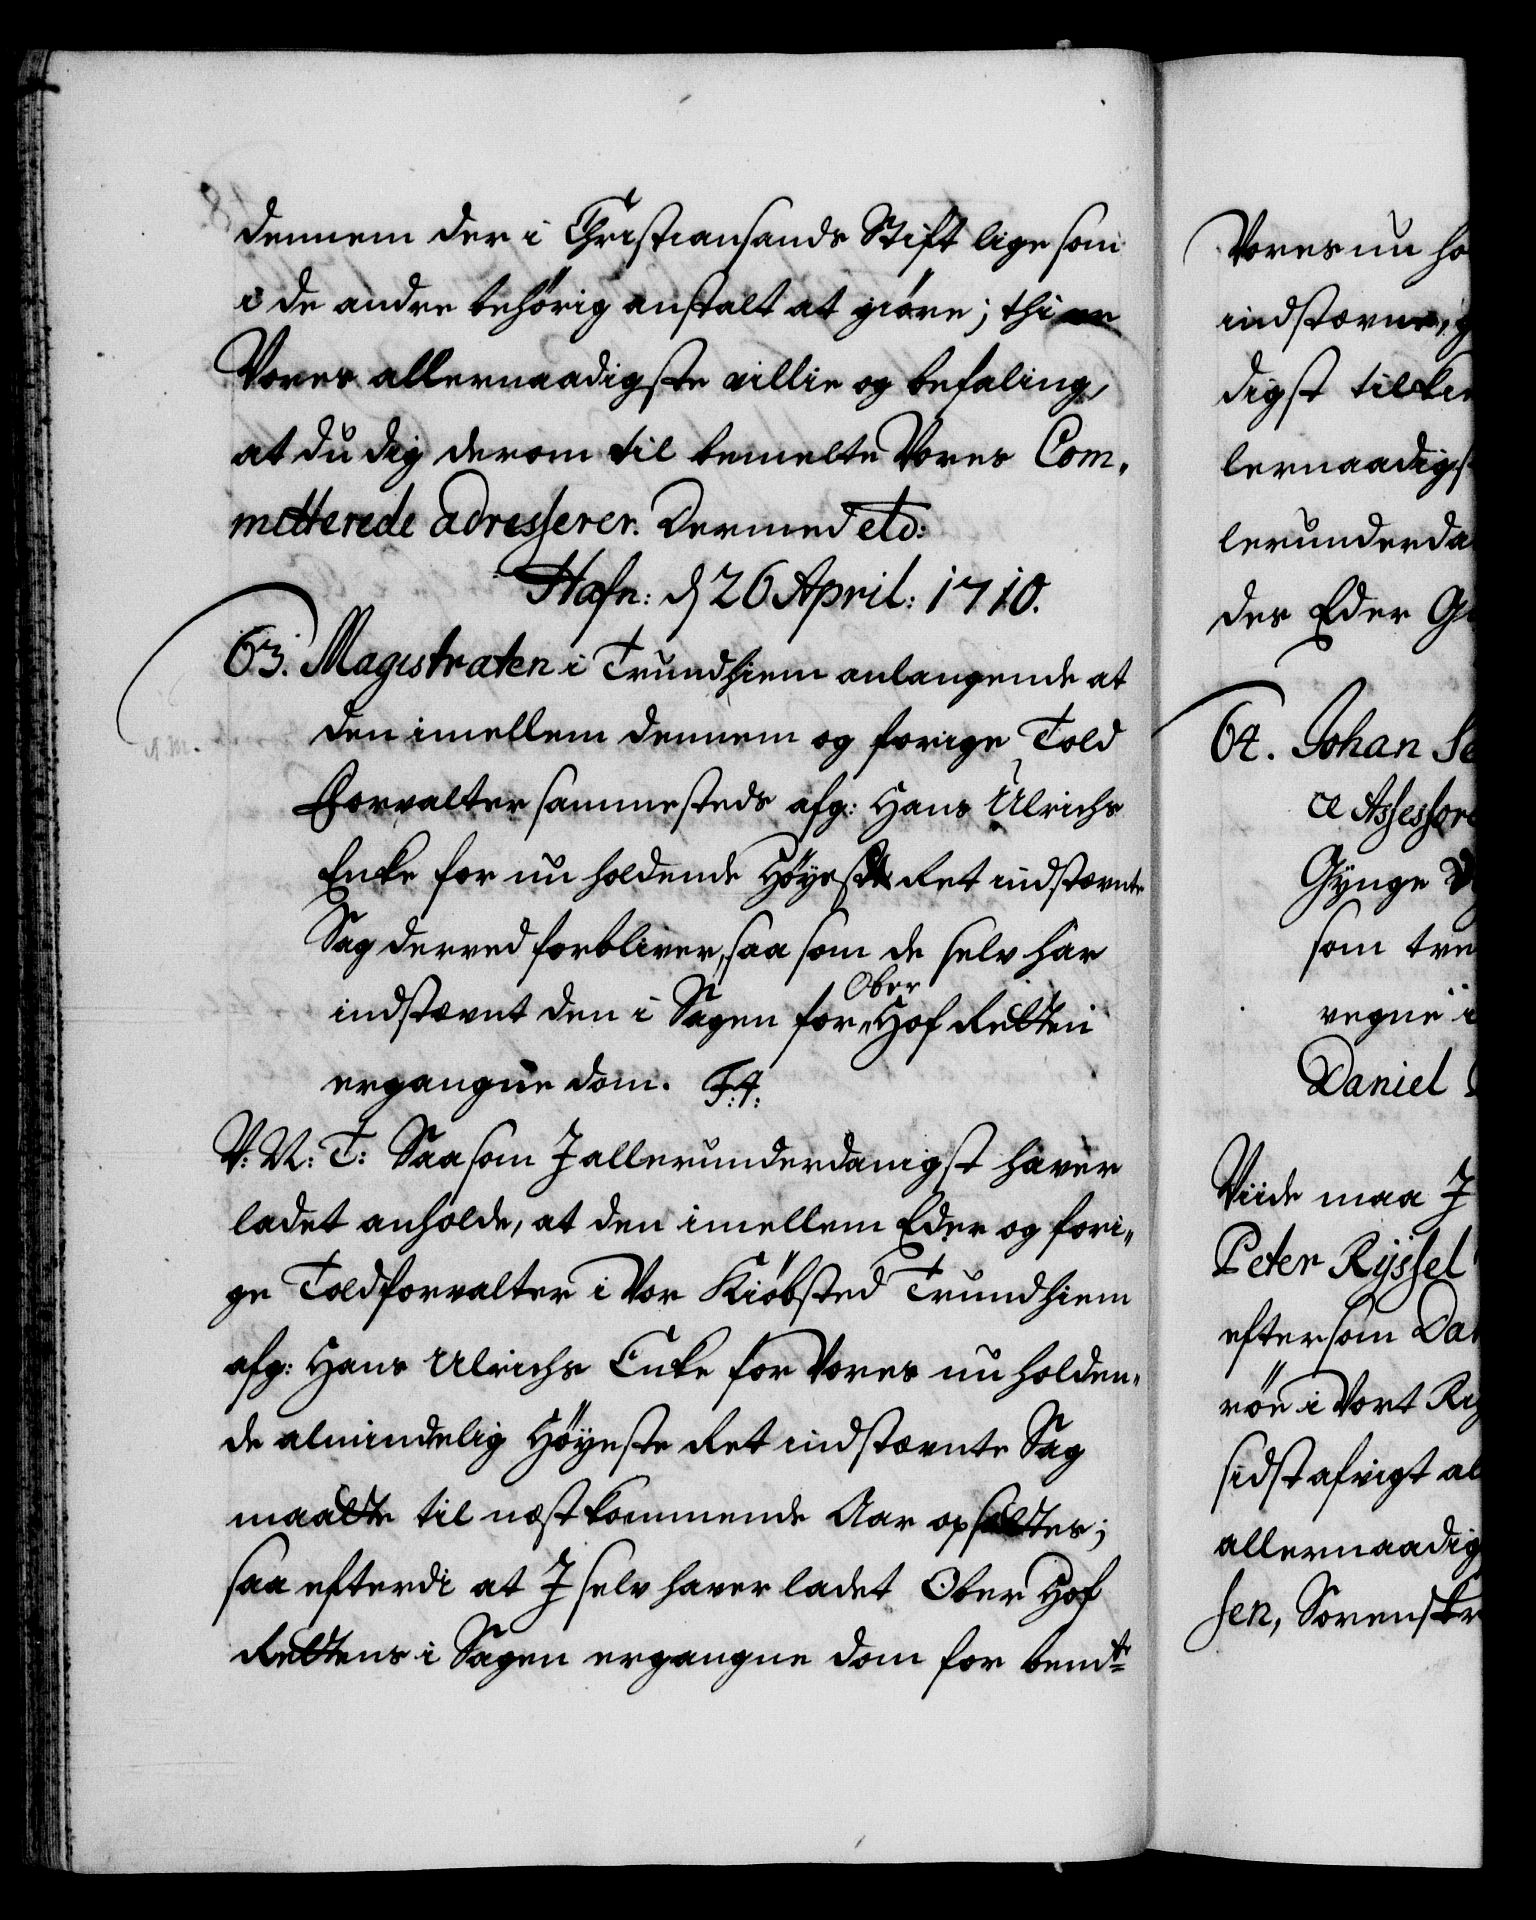 dennem der i Christiansands Stift lige som
i de andre behörig anstalt at giöre; thi er
Vores allernaadigste villie og befaling,
at du dig derom til bemelte Vores Com„
mitterede adresserer. Dermed etc:
Hafn: d 26 April: 1710.
63. Magistraten i Trundhiem anlangende at
den imellem dennem og forige Told
Forvalter sammesteds afg: Hans Ulrichs
Enke for nu holdende Höyeste Ret indstævnte
Sag derved forbliver, saa som de selv har
indstævnt den i Sagen for Ober Hof Retten
ergangne dom.
V: U: T: Saasom J allerunderdanigst haver
ladet anholde, at den imellem Eder og fori„
ge Toldforvalter i Vor Kiöbsted Trundhiem
afg: Hans Ulrichs Enke for Vores nu holden„
de almindelig Höyeste Ret indstævnte Sag
maatte til næstkommende Aar opsættes;
saa efterdi at J selv haver ladet Ober Hof
Rettens i Sagen ergangne dom for bemte
Vores nu ho
indstævne,
digst tilkie
lernaadigst
lerunderda
des Eder G
64. Johan Se
ce Assessore
Gynge
som tre
vegne i
Daniel
Viide maa J
Peter Ryssel
eftersom Da
röe i Vort Ri
sidstafvigt al
allernaadig
sen, Sorenskr